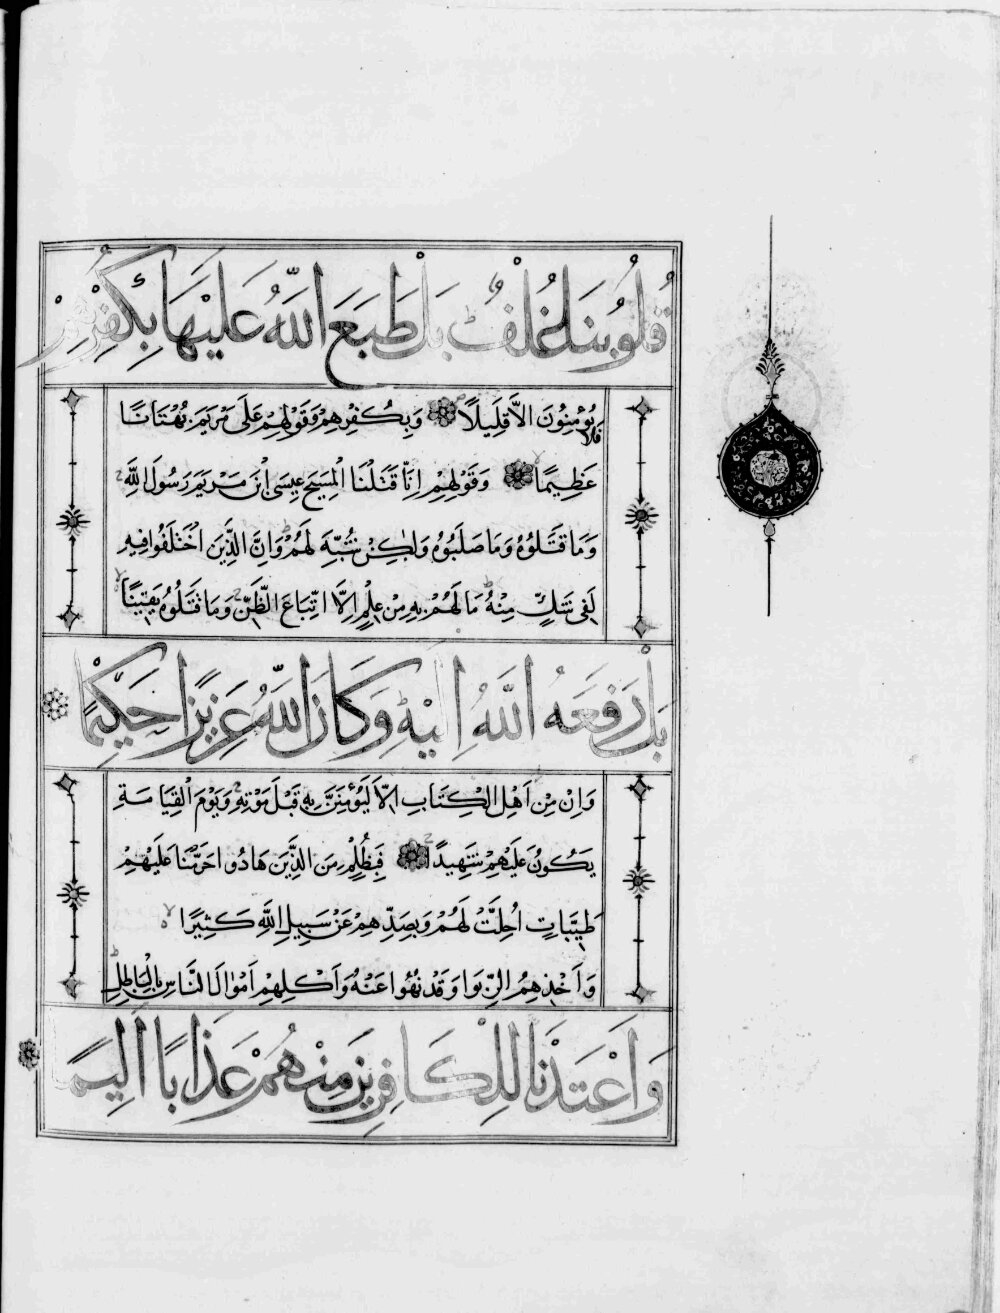 قُلُوبُنَا غُلْفٌ بَلْ طَبَعَ اللَّهُ عَلَيْهَا بِكُفْرِهِمْ
فَلَا يُؤْمِنُونَ اِلَّا قَلِيلًا وَبِكُفْرِهِمْ وَقَوْلِهِمْ عَلَى مَرْيَمَ بُهْتَانًا
عَظِيمًا وَقَوْلِهِمْ اِنَّا قَتَلْنَا الْمَسِيحَ عِيسَى ابْنَ مَرْيَمَ رَسُولَ اللَّهِ
وَمَا قَتَلُوهُ وَمَا صَلَبُوهُ وَلٰكِنْ شُبِّهَ لَهُمْ وَاِنَّ الَّذِينَ اخْتَلَفُوا فِيهِ
لَفِى شَكٍّ مِنْهُ مَا لَهُمْ بِهِ مِنْ عِلْمٍ اِلَّا اتِّبَاعَ الظَّنِّ وَمَا قَتَلُوهُ يَقِينًا
بَلْ رَفَعَهُ اللَّهُ اِلَيْهِ وَكَانَ اللَّهُ عَزِيزًا حَكِيمًا
وَاِنْ مِنْ اَهْلِ الْكِتَابِ اِلَّا لَيُؤْمِنَنَّ بِهِ قَبْلَ مَوْتِهِ وَيَوْمَ الْقِيَامَةِ
يَكُونُ عَلَيْهِمْ شَهِيدًا فَبِظُلْمٍ مِنَ الَّذِينَ هَادُوا حَرَّمْنَا عَلَيْهِمْ
طَيِّبَاتٍ اُحِلَّتْ لَهُمْ وَبِصَدِّهِمْ عَنْ سَبِيلِ اللَّهِ كَثِيرًا
وَاَخْذِهِمُ الرِّبَوا وَقَدْ نُهُوا عَنْهُ وَاَكْلِهِمْ اَمْوَالَ النَّاسِ بِالْبَاطِلِ
وَاَعْتَدْنَا لِلْكَافِرِينَ مِنْهُمْ عَذَابًا اَلِيمًا